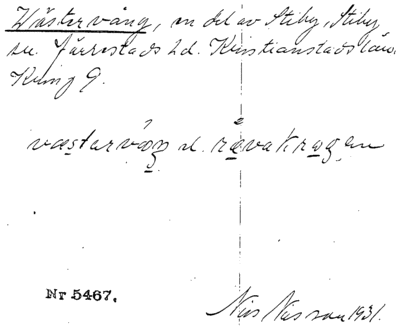 Wästervång, en del av Stiby, Stiby
sn. Järrestads hd. Kristianstads län.
Kring 9.
væstarvåŋ el. rävakrogen
Nr 5467.
Nils Nilsson 1931.